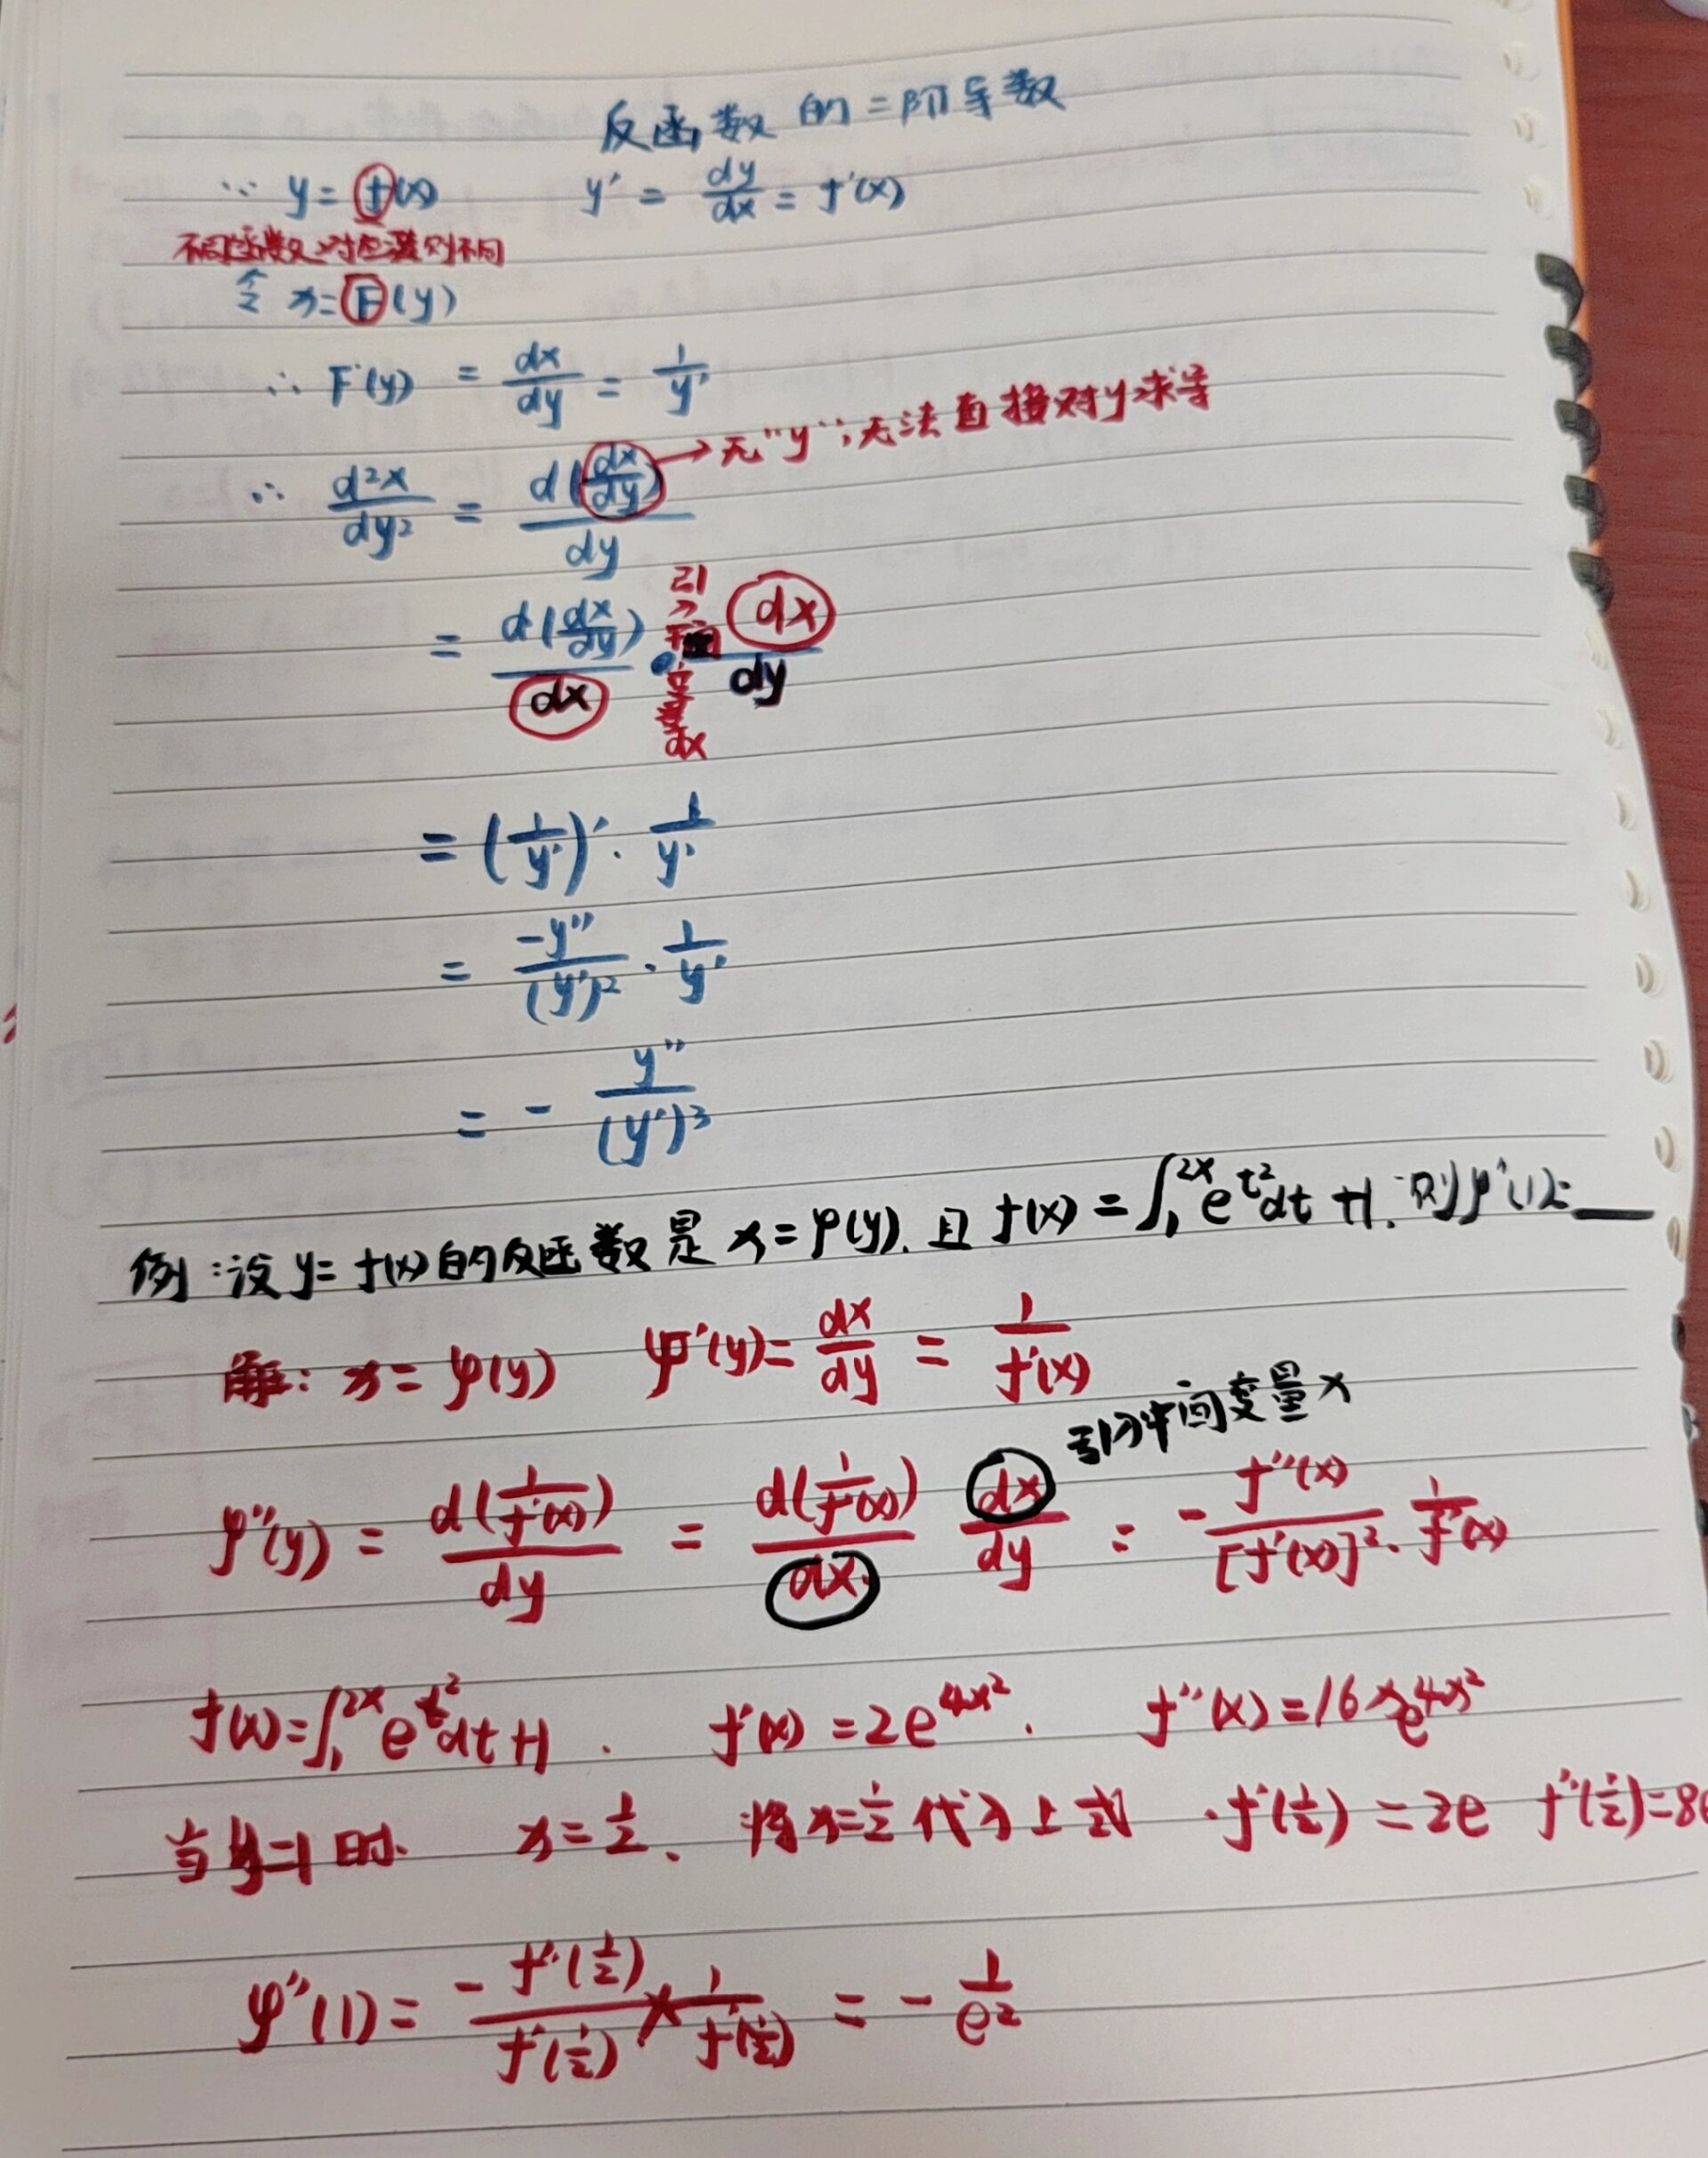 反函数的二阶导数
∵ y = f(x)  y' = dy/dx = f'(x)
不同函数,对应法则不同
令 x = F(y)
∴ F'(y) = dx/dy = 1/y'
∴ d²x/dy² = d(dx/dy)/dy → 无"y",无法直接对y求导
= d(dx/dy)/dx · dx/dy
引入中间变量dx
= (1/y')' · 1/y'
= -y''/(y')² · 1/y'
= - y''/(y')³
例:设 y = f(x) 的反函数是 x = φ(y). 且 f(x) = ∫₁^{2x} e^{t²} dt + 1. 则 φ''(1) = ___
解: x = φ(y)  φ'(y) = dx/dy = 1/f'(x)
引入中间变量x
φ''(y) = d(1/f'(x))/dy = d(1/f'(x))/dx dx/dy = - f''(x)/[f'(x)]² · 1/f'(x)
f(x) = ∫₁^{2x} e^{t²} dt + 1 . f'(x) = 2e^{4x²} . f''(x) = 16xe^{4x²}
当 y=1 时. x = 1/2 、将 x=1/2 代入上式 . f'(1/2) = 2e f''(1/2) = 8e
φ''(1) = - f''(1/2)/f'(1/2) × 1/f'(1/2) = - 1/e²